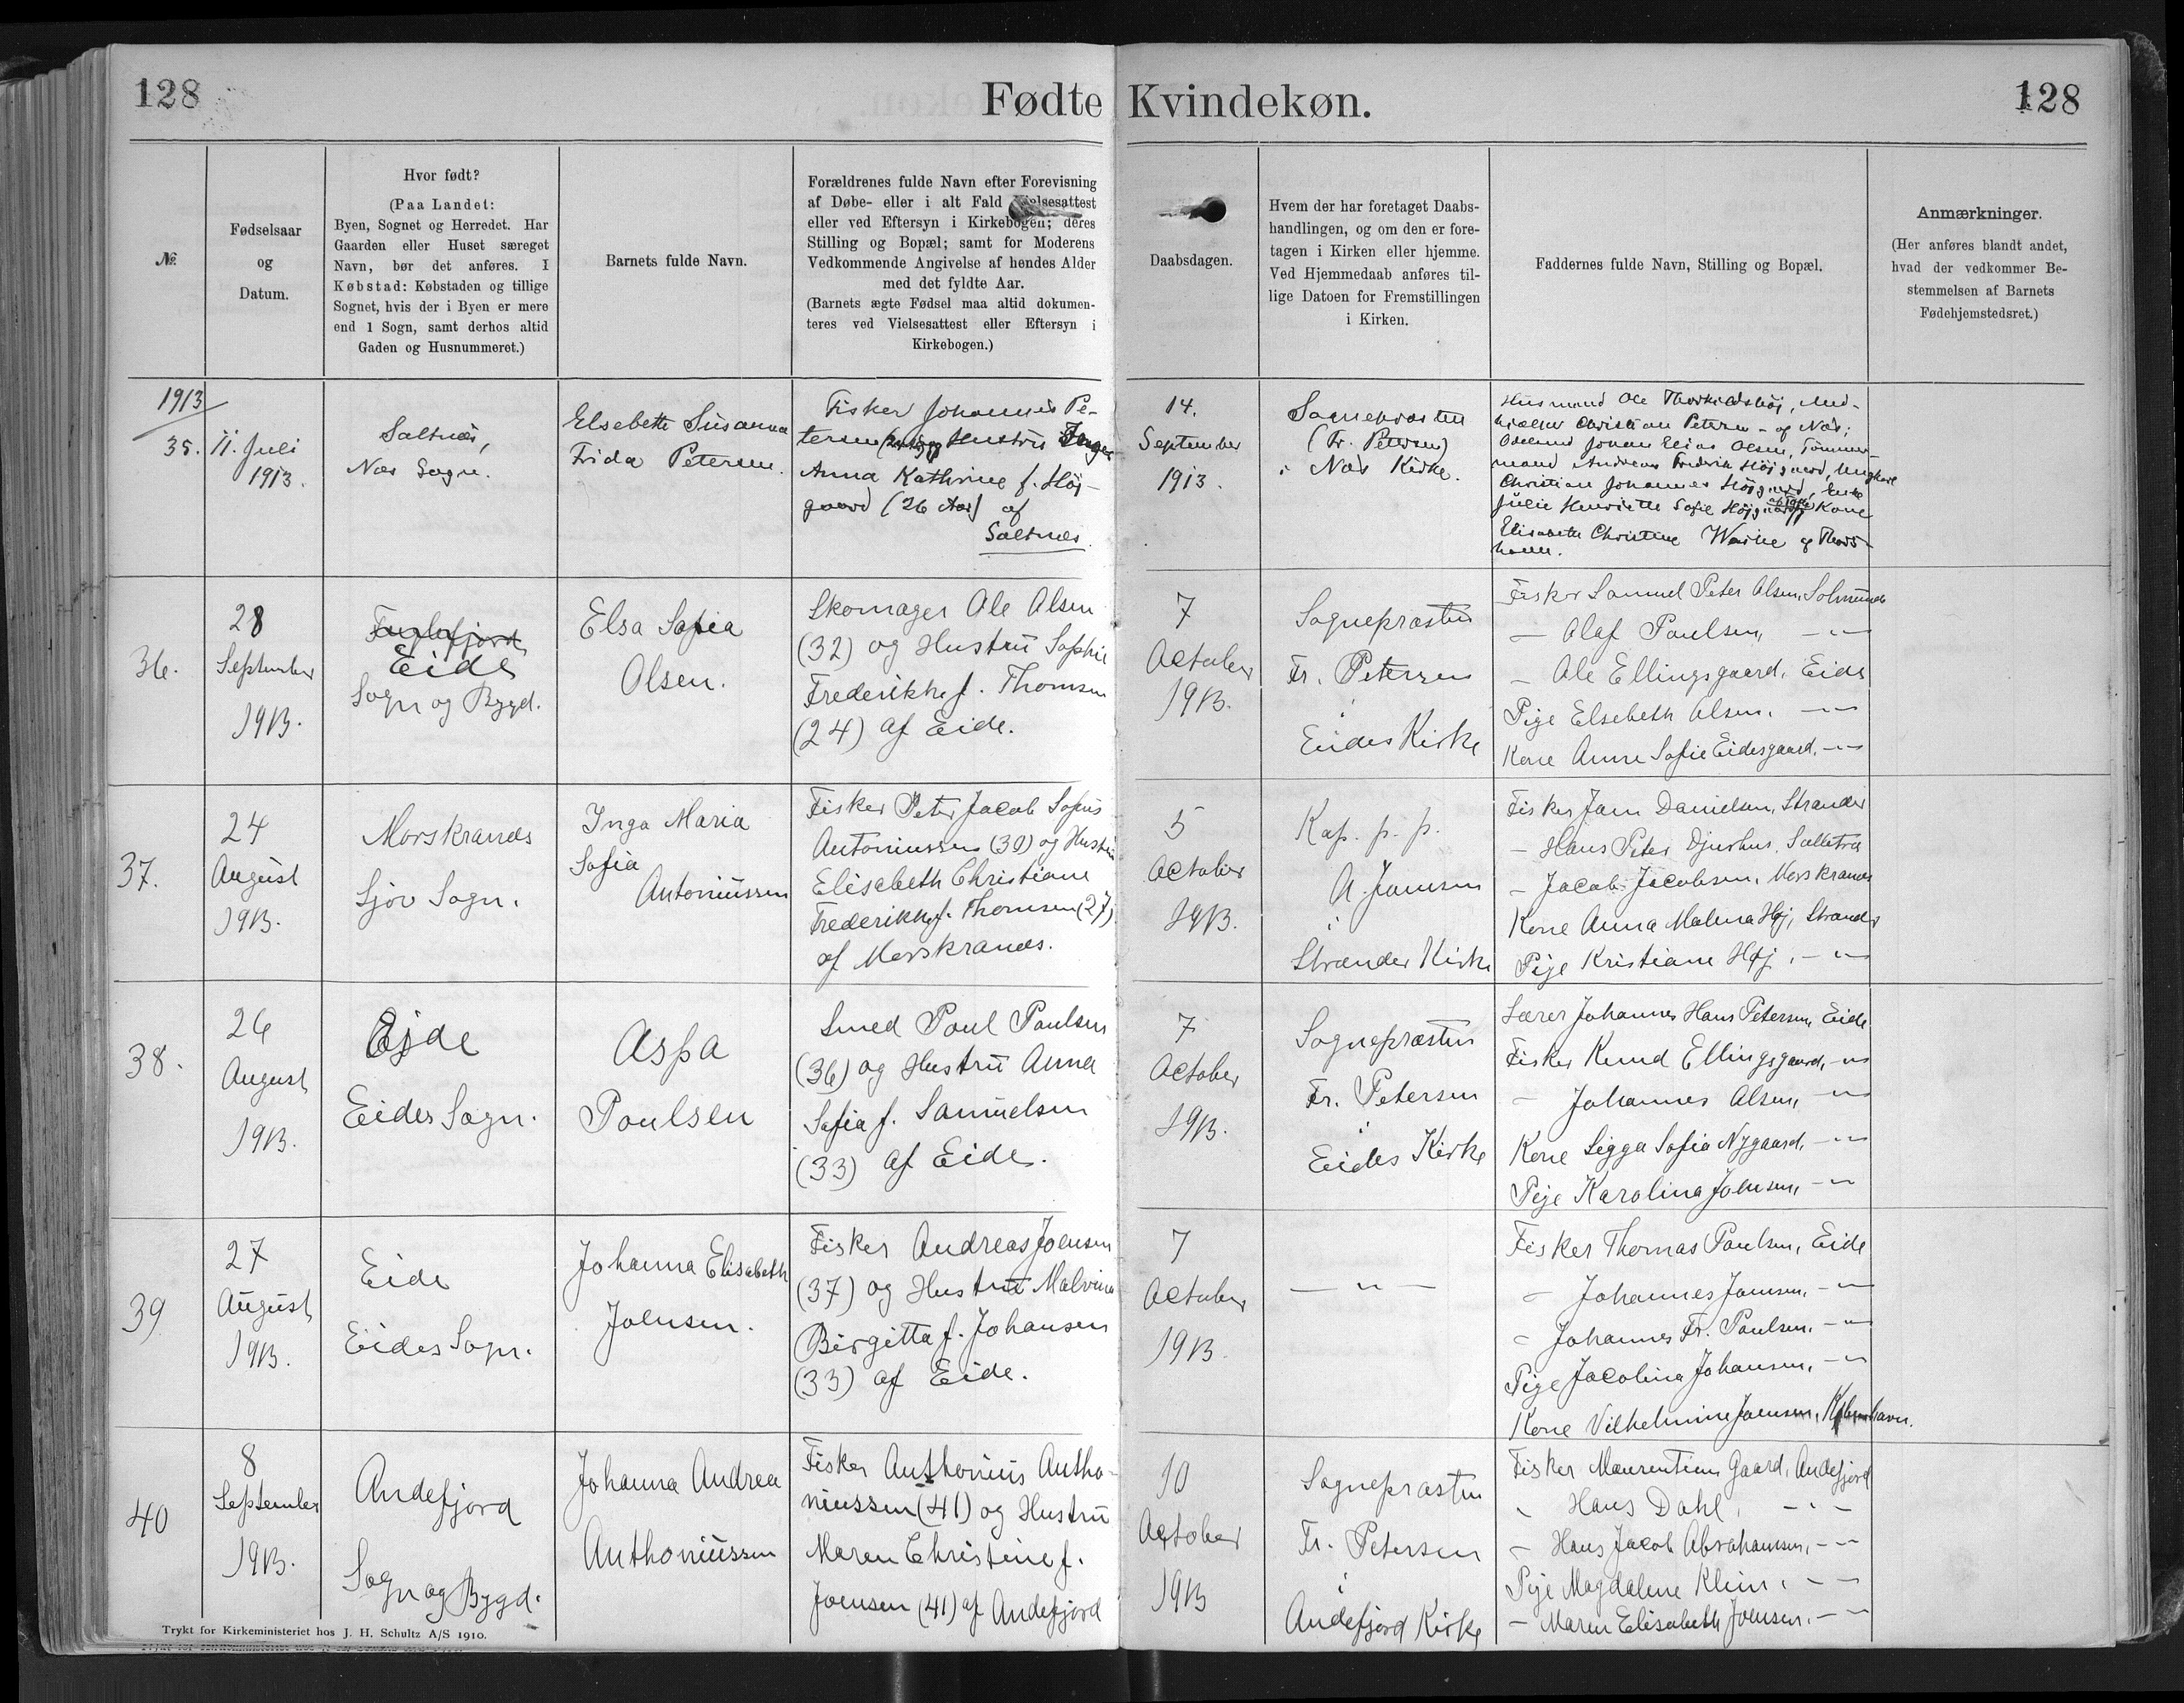 128
Fødte Kvindekøn.
128
№.
Fødselsaar
og
Datum.
Hvor født?
(Paa Landet:
Byen, Sognet og Herredet. Har
Gaarden eller Huset særeget
Navn, bør det anføres. I
Købstad: Købstaden og tillige
Sognet, hvis der i Byen er mere
end 1 Sogn, samt derhos altid
Gaden og Husnummeret.)
Barnets fulde Navn.
Forældrenes fulde Navn efter Forevisning
af Døbe- eller i alt Fald Vielsesattest
eller ved Eftersyn i Kirkebogen; deres
Stilling og Bopæl; samt for Moderens
Vedkommende Angivelse af hendes Alder
med det fyldte Aar.
(Barnets ægte Fødsel maa altid dokumen-
teres ved Vielsesattest eller Eftersyn i
Kirkebogen.)
Daabsdagen.
Hvem der har foretaget Daabs-
handlingen, og om den er fore-
tagen i Kirken eller hjemme.
Ved Hjemmedaab anføres til-
lige Datoen for Fremstillingen
i Kirken.
Faddernes fulde Navn, Stilling og Bopæl.
Anmærkninger.
(Her anføres blandt andet,
hvad der vedkommer Be-
stemmelsen af Barnets
Fødehjemstedsret.)
1913
35.
11. Juli
1913.
Saltnæs,
Næs Sogn.
Elsebeth Susanna
Frida Petersen.
Fisker Johannes Pe-
tersen og Hustru Inger
Anna Kathrine f. Höj-
gaard (26 Aar) af
Saltnæs.
14.
September
1913.
Sognepræsten
(Fr. Petersen)
i Næs Kirke.
Husmand Ole Thorkildshöj, Med-
hjælper Christian Petersen - af Næs;
Odelsmd Johan Elias Olsen, Tömmer-
mand Andreas Frederik Höjgaard, Ungkarl
Christian Johannes Höjgaard, Enke
Julie Henriette Sofie Höjgaard Kone
Elisabeth Christine af Thors-
havn.
36.
28
September
1913.
Fuglefjord
Eide
Sogn og Bygd.
Elsa Sofia
Olsen.
Skomager Ole Olsen
(32) og Hustru Sophie
Frederikke f. Thomsen
(24) af Eide.
7
October
1913.
Sognepræsten
Fr. Petersen
i
Eides Kirke
Fisker Samuel Peter Olsen, Solmunde
— Olaf Poulsen, — " —
— Ole Ellingsgaard, Eide
Pige Elsebeth Olsen, — " —
Kone Anne Sofie Eidesgaard, — " —
37.
24
August
1913.
Morskranæs
Sjov Sogn.
Inga Maria
Sofia
Antoniussen
Fisker Peter Jacob Sofus
Antoniussen (39) og Hustru
Elisabeth Christiane
Frederikke f. Thomsen (27)
af Morskranæs.
5
October
1913.
Kap. p. p.
A. Joensen
i
Strænder Kirke
Fisker Joen Danielsen, Strænder
— Hans Peter Djurhus, Selletræ
— Jacob Jacobsen, Morskranæs
Kone Anna Malena Höj, Strænder
Pige Kristiane Höj, — " —
38.
26
August
1913.
Eide
Eides Sogn.
Aspa
Poulsen
Smed Poul Poulsen
(36) og Hustru Anna
Sofia f. Samuelsen
(33) af Eide.
7
October
1913.
Sognepræsten
Fr. Petersen
i
Eides Kirke
Lærer Johannes Hans Petersen, Eide
Fisker Knud Ellingsgaard, — " —
— Johannes Olsen, — " —
Kone Sigga Sofia Nygaard, — " —
Pige Karolina Joensen, — " —
39
27
August
1913.
Eide
Eides Sogn.
Johanna Elisabeth
Joensen.
Fisker Andreas Joensen
(37) og Hustru Malvina
Birgitta f. Johansen
(33) af Eide.
7
October
1913
— " —
Fisker Thomas Poulsen, Eide
— Johannes Joensen, — " —
— Johannes Fr. Poulsen, — " —
Pige Jacolina Johansen, — " —
Kone Vilhelmine Joensen, Köbenhavn.
40
8
September
1913.
Andefjord
Sogn og Bygd.
Johanna Andrea
Anthoniussen
Fisker Anthonius Antho-
niussen (41) og Hustru
Maren Christine f.
Joensen (41) af Andefjord
10
October
1913
Sognepræsten
Fr. Petersen
i
Andefjord Kirke
Fisker Maurentius Gaard, Andefjord
— Hans Dahl, — " —
— Hans Jacob Abrahamsen, — " —
Pige Magdalene Klein, — " —
— Maren Elisabeth Joensen, — " —
Trykt for Kirkeministeriet hos J. H. Schultz A/S 1910.